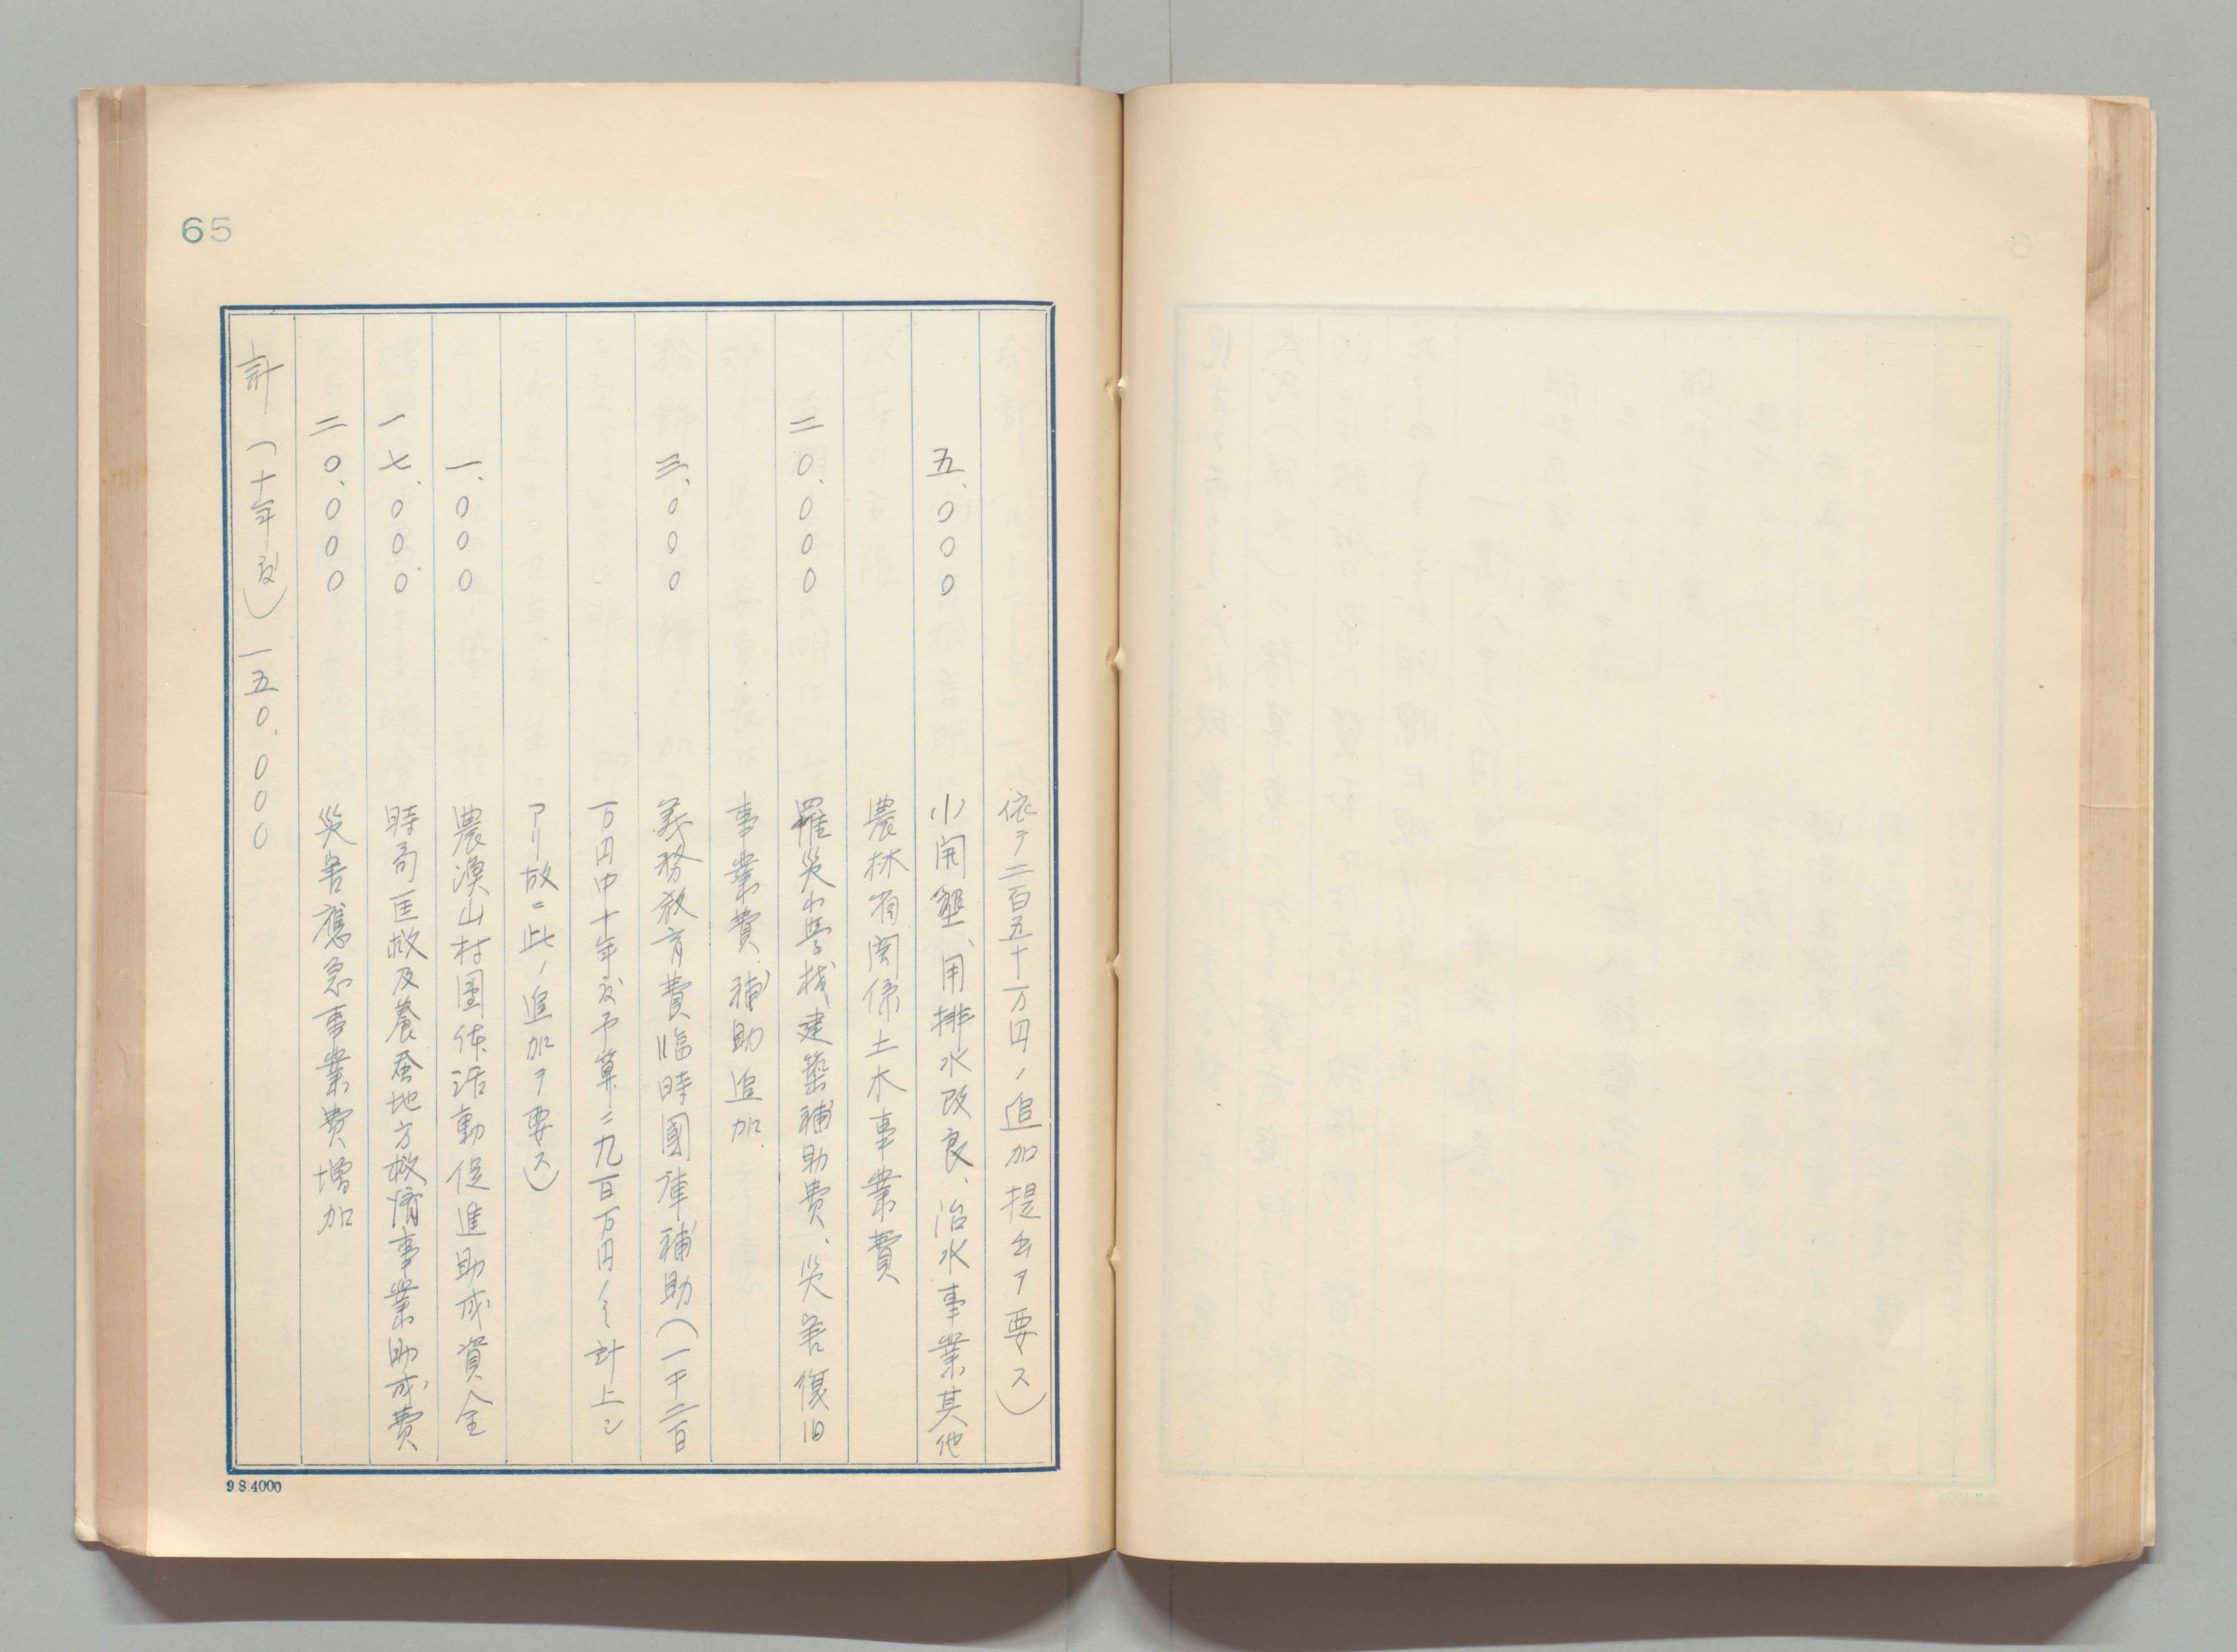 65
依テ二百五十万円ノ追加提出ヲ要ス)
五、〇〇〇 小開墾、用排水改良、治水事業其他
農林省関係土木事業費
二〇、〇〇〇 罹災小学校建築補助費、災害復旧
事業費補助追加
三、〇〇〇 義務教育費臨時國庫補助(一千二百
万円中十年度予算ニ九百万円ノミ計上シ
アリ故ニ此ノ追加ヲ要ス)
一、〇〇〇 農漁山村團体活動促進助成資金
一七、〇〇〇 時局匡救及養蚕地方救済事業助成費
二〇、〇〇〇 災害應急事業費増加
計(十年度)一五〇、〇〇〇
9 8.4000